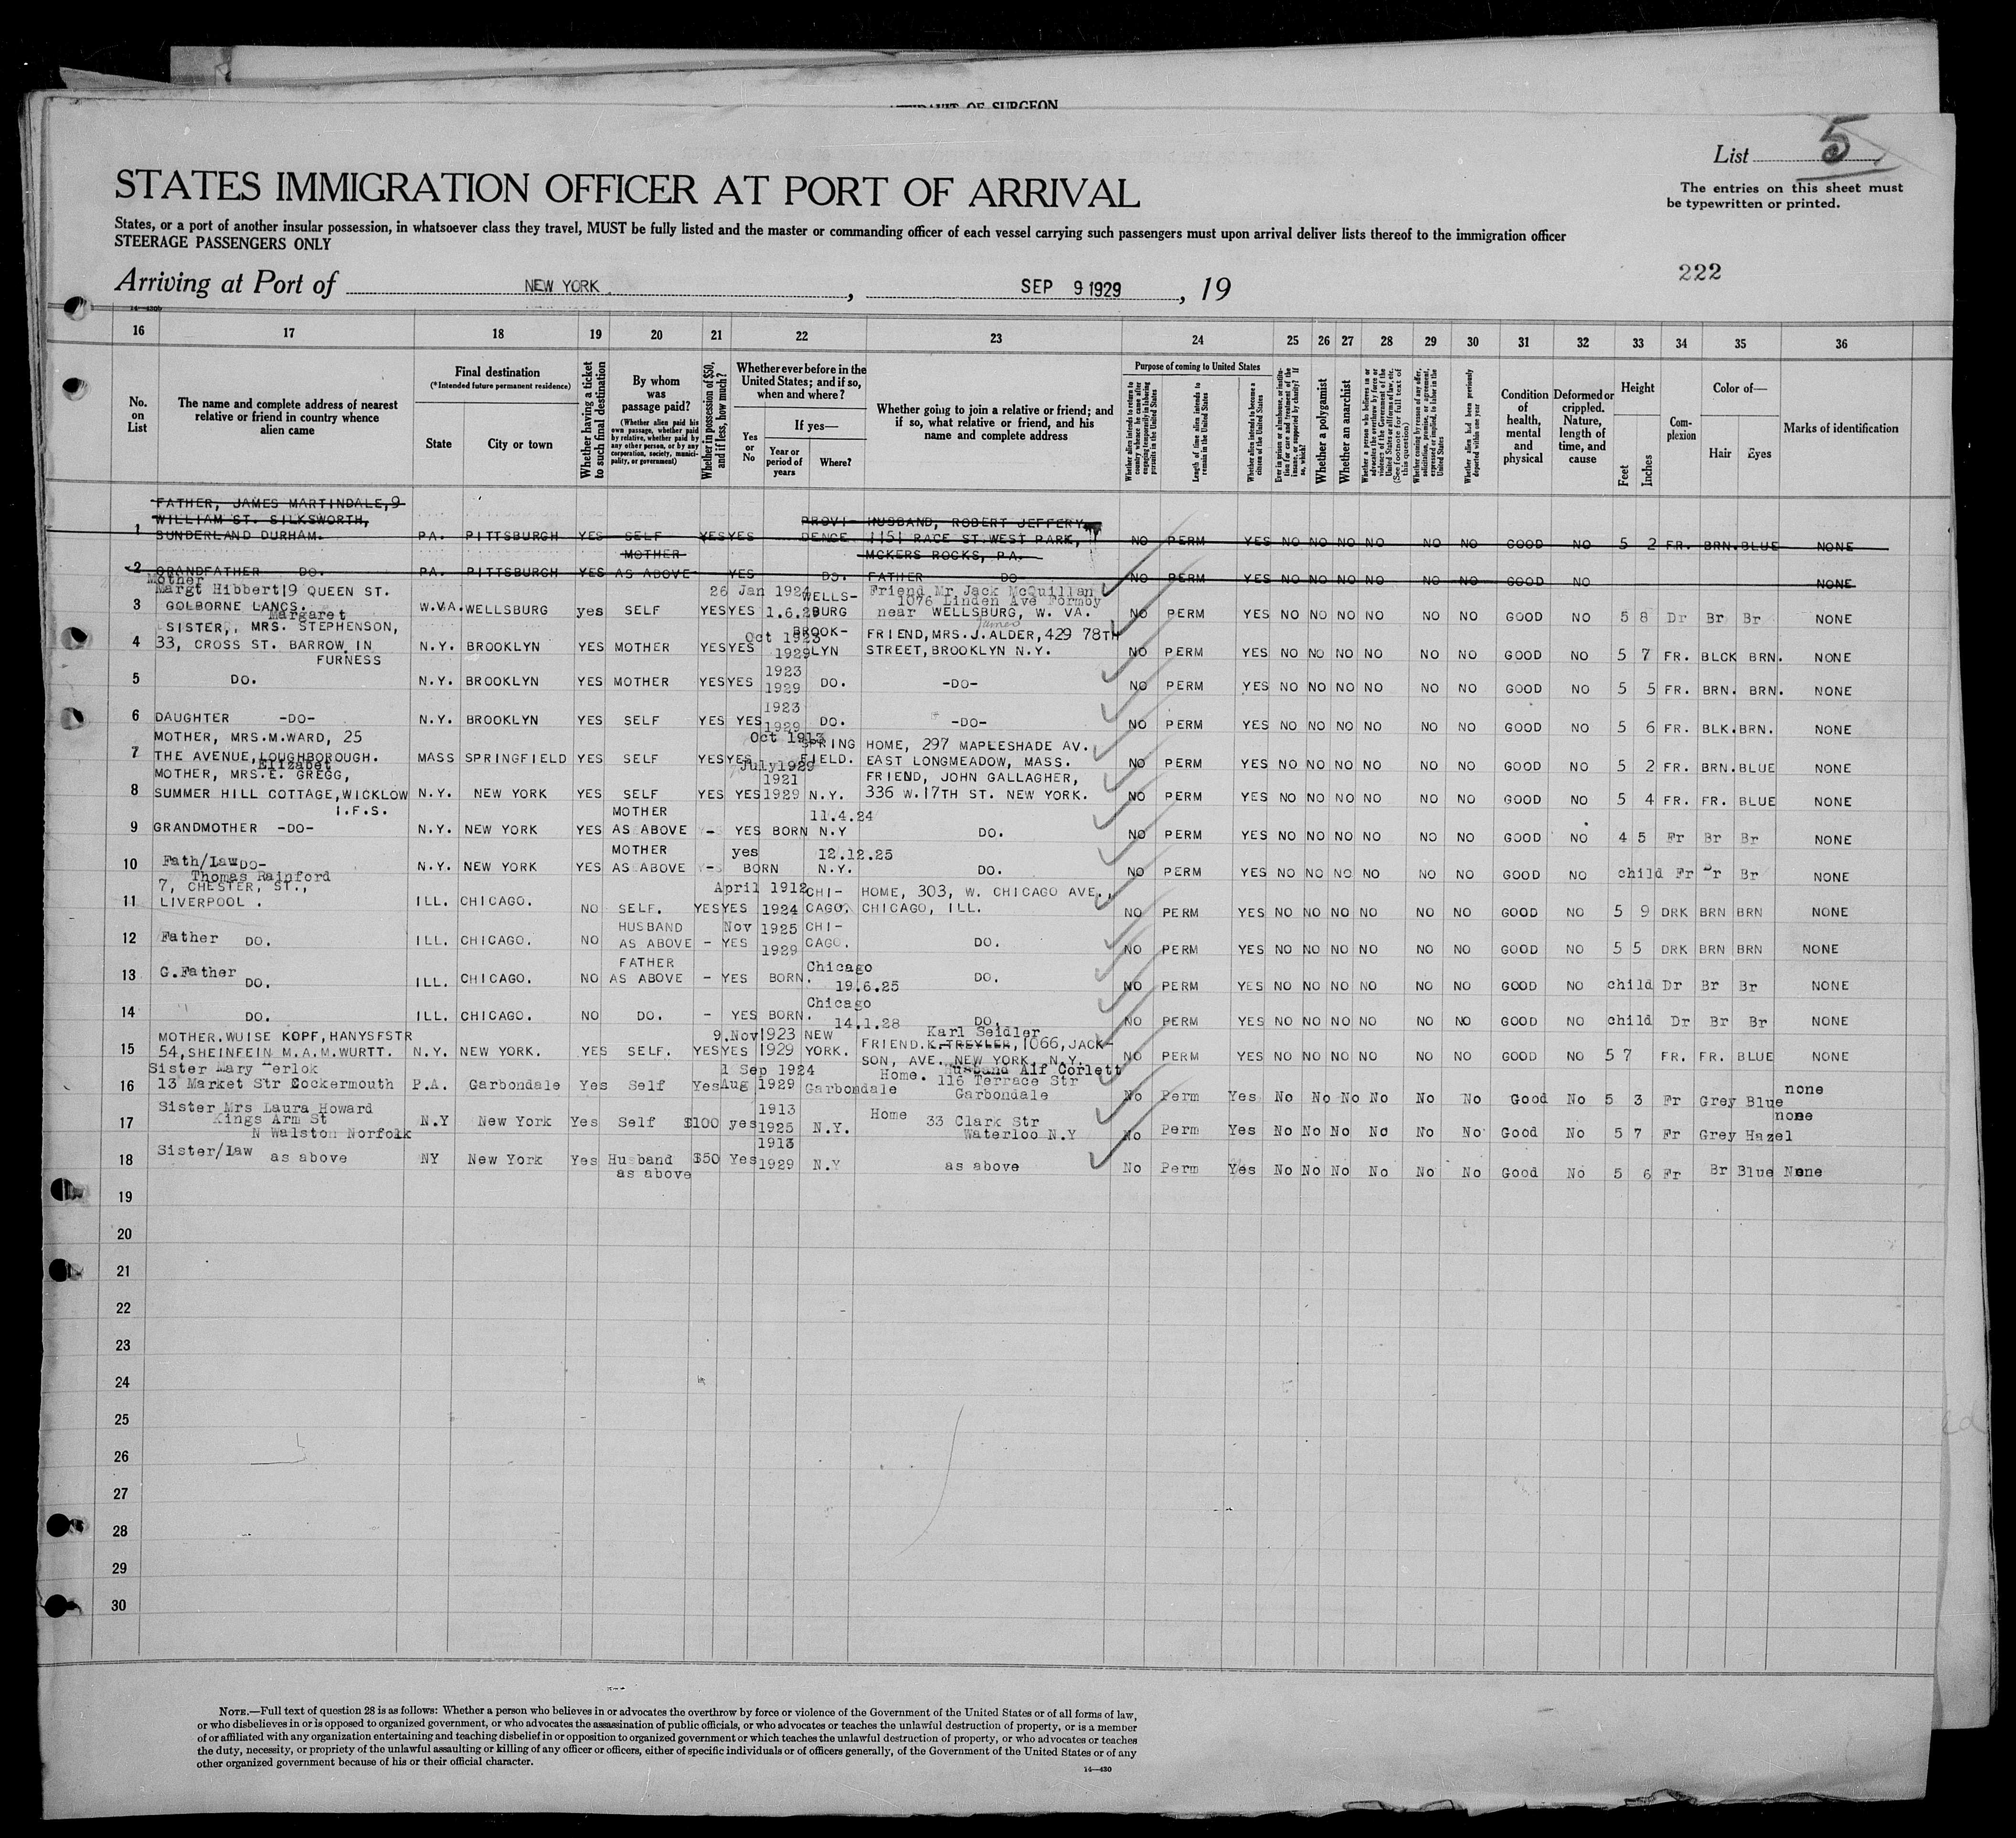 OF SURGEON
List 5
The entries on this sheet must
be typewritten or printed.
STATES IMMIGRATION OFFICER AT PORT OF ARRIVAL
States, or a port of another insular possession, in whatsoever class they travel, MUST be fully listed and the master or commanding officer of each vessel carrying such passengers must upon arrival deliver lists thereof to the immigration officer
STEERAGE PASSENGERS ONLY
222
Arriving at Port of NEW YORK, SEP 9 1929, 19
14—430b
16 17 18 19 20 21 22 23 24 25 26 27 28 29 30 31 32 33 34 35 36
No. on List
The name and complete address of nearest relative or friend in country whence alien came
Final destination
(*Intended future permanent residence)
State
City or town
Whether having a ticket to such final destination
By whom was passage paid?
(Whether alien paid his own passage, whether paid by relative, whether paid by any other person, or by any corporation, society, municipality, or government)
Whether in possession of $50, and if less, how much?
Whether ever before in the United States; and if so, when and where?
If yes—
Yes or No
Year or period of years
Where?
Whether going to join a relative or friend; and if so, what relative or friend, and his name and complete address
Purpose of coming to United States
Whether alien intends to return to country whence he came after engaging temporarily in laboring pursuits in the United States
Length of time alien intends to remain in the United States
Whether alien intends to become a citizen of the United States
Ever in prison or almshouse, or institution for care and treatment of the insane, or supported by charity? If so, which?
Whether a polygamist
Whether an anarchist
Whether a person who believes in or advocates the overthrow by force or violence of the Government of the United States or all forms of law, etc. (See footnote for full text of this question)
Whether coming by reason of any offer, solicitation, promise, or agreement, expressed or implied, to labor in the United States
Whether alien had been previously deported within one year
Condition of health, mental and physical
Deformed or crippled. Nature, length of time, and cause
Height
Feet
Inches
Complexion
Color of—
Hair
Eyes
Marks of identification
FATHER, JAMES MARTINDALE, 9
WILLIAM ST. SILKSWORTH, PROVI- HUSBAND, ROBERT JEFFERY
1 SUNDERLAND DURHAM. PA. PITTSBURGH YES SELF YES YES DENCE 1151 RACE ST. WEST PARK, NO PERM YES NO NO NO NO NO NO GOOD NO 5 2 FR. BRN. BLUE NONE
MOTHER MCKERS ROCKS, PA.
2 GRANDFATHER DO. PA. PITTSBURGH YES AS ABOVE YES DO. FATHER DO NO PERM YES NO NO NO NO NO NO GOOD NO NONE
Mother
Margt Hibbert 19 QUEEN ST. 26 Jan 1924 WELLS- Friend Mr Jack McQuillan
3 GOLBORNE LANCS. W.VA. WELLSBURG yes SELF YES YES 1.6.29 BURG 1076 Linden Ave Formby NO PERM YES NO NO NO NO NO NO GOOD NO 5 8 Dr Br Br NONE
near WELLSBURG, W. VA.
Margaret
SISTER,, MRS. STEPHENSON, Oct 1923 BROOK- James FRIEND, MRS. J. ALDER, 429 78TH
4 33, CROSS ST. BARROW IN N.Y. BROOKLYN YES MOTHER YES YES 1929 LYN STREET, BROOKLYN N.Y. NO PERM YES NO NO NO NO NO NO GOOD NO 5 7 FR. BLCK BRN. NONE
FURNESS
1923
5 DO. N.Y. BROOKLYN YES MOTHER YES YES 1929 DO. -DO- NO PERM YES NO NO NO NO NO NO GOOD NO 5 5 FR. BRN. BRN. NONE
1923
6 DAUGHTER -DO- N.Y. BROOKLYN YES SELF YES YES 1929 DO. -DO- NO PERM YES NO NO NO NO NO NO GOOD NO 5 6 FR. BLK. BRN. NONE
MOTHER, MRS. M. WARD, 25 Oct 1913 SPRING HOME, 297 MAPLESHADE AV.
7 THE AVENUE, LOUGHBOROUGH. MASS SPRINGFIELD YES SELF YES YES July 1929 FIELD. EAST LONGMEADOW, MASS. NO PERM YES NO NO NO NO NO NO GOOD NO 5 2 FR. BRN. BLUE NONE
Elizabet
MOTHER, MRS. E. GREGG, 1921 FRIEND, JOHN GALLAGHER,
8 SUMMER HILL COTTAGE, WICKLOW N.Y. NEW YORK YES SELF YES YES 1929 N.Y. 336 W. 17TH ST. NEW YORK. NO PERM YES NO NO NO NO NO NO GOOD NO 5 4 FR. FR. BLUE NONE
I.F.S. MOTHER 11.4.24
9 GRANDMOTHER -DO- N.Y. NEW YORK YES AS ABOVE - YES BORN N.Y DO. NO PERM YES NO NO NO NO NO NO GOOD NO 4 5 Fr Br Br NONE
MOTHER yes 12.12.25
10 Fath/Law DO- N.Y. NEW YORK YES AS ABOVE - BORN N.Y. DO. NO PERM YES NO NO NO NO NO NO GOOD NO child Fr Br Br NONE
Thomas Rainford
7, CHESTER, ST., April 1912 CHI- HOME, 303, W. CHICAGO AVE.,
11 LIVERPOOL. ILL. CHICAGO. NO SELF. YES YES 1924 CAGO. CHICAGO, ILL. NO PERM YES NO NO NO NO NO NO GOOD NO 5 9 DRK BRN BRN NONE
HUSBAND Nov 1925 CHI-
12 Father DO. ILL. CHICAGO. NO AS ABOVE - YES 1929 CAGO. DO. NO PERM YES NO NO NO NO NO NO GOOD NO 5 5 DRK BRN BRN NONE
FATHER Chicago
13 G.Father DO. ILL. CHICAGO. NO AS ABOVE - YES BORN. 19.6.25 DO. NO PERM YES NO NO NO NO NO NO GOOD NO child Dr Br Br NONE
Chicago
14 DO. ILL. CHICAGO. NO DO. - YES BORN. 14.1.28 DO. NO PERM YES NO NO NO NO NO NO GOOD NO child Dr Br Br NONE
MOTHER. WUISE KOPF, HANYSFSTR 9.Nov 1923 NEW Karl Seidler
15 54, SHEINFEIN M.A.M. WURTT. N.Y. NEW YORK. YES SELF. YES YES 1929 YORK. FRIEND. K. TREYLER, 1066, JACK- NO PERM YES NO NO NO NO NO NO GOOD NO 5 7 FR. FR. BLUE NONE
SON, AVE. NEW YORK. N.Y.
Sister Mary 1 Sep 1924 Husband Alf Corlett
16 13 Market Str Cockermouth P.A. Garbondale Yes Self Yes Aug 1929 Garbondale Home. 116 Terrace Str No Perm Yes No No No No No No Good No 5 3 Fr Grey Blue none
Garbondale
Sister Mrs Laura Howard 1913 Home
17 Kings Arm St N.Y New York Yes Self $100 yes 1925 N.Y. 33 Clark Str No Perm Yes No No No No No No Good No 5 7 Fr Grey Hazel none
N Walston Norfolk Waterloo N.Y
1913
18 Sister/law as above NY New York Yes Husband $50 Yes 1929 N.Y as above No Perm Yes No No No No No No Good No 5 6 Fr Br Blue None
as above
19
20
21
22
23
24
25
26
27
28
29
30
NOTE.—Full text of question 28 is as follows: Whether a person who believes in or advocates the overthrow by force or violence of the Government of the United States or of all forms of law,
or who disbelieves in or is opposed to organized government, or who advocates the assassination of public officials, or who advocates or teaches the unlawful destruction of property, or is a member
of or affiliated with any organization entertaining and teaching disbelief in or opposition to organized government or which teaches the unlawful destruction of property, or who advocates or teaches
the duty, necessity, or propriety of the unlawful assaulting or killing of any officer or officers, either of specific individuals or of officers generally, of the Government of the United States or of any
other organized government because of his or their official character.
14—430